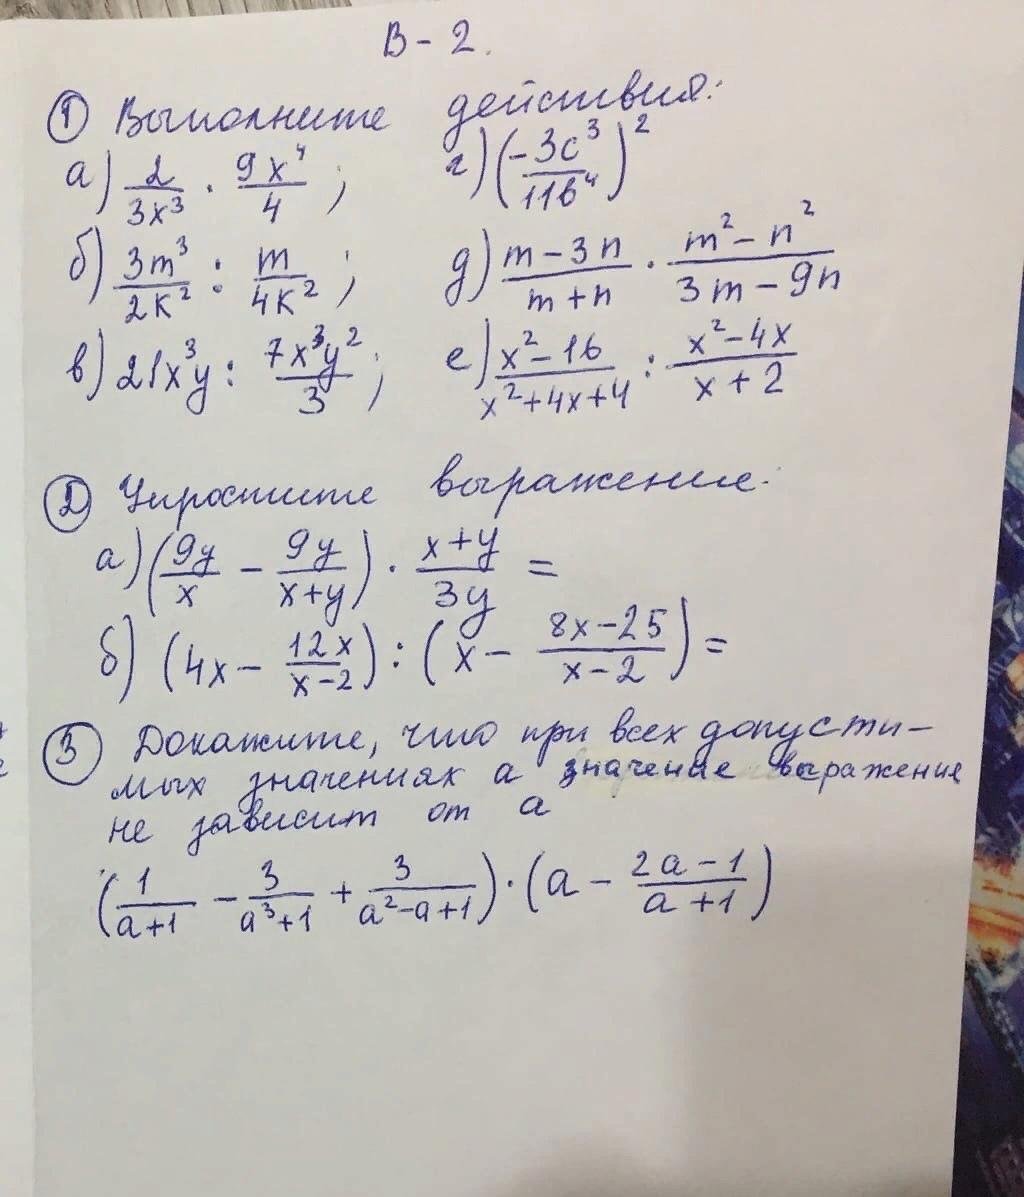 В - 2.
① Выполните действия:
а) 2/(3x³) · 9x⁴/4 ; г) (-3c³/(11b⁴))²
б) 3m³/(2k²) : m/(4k²) ; д) (m-3n)/(m+n) · (m²-n²)/(3m-9n)
в) 21x³y : 7x³y²/3 ; е) (x²-16)/(x²+4x+4) : (x²-4x)/(x+2)
② Упростите выражение.
а) (9y/x - 9y/(x+y)) · (x+y)/(3y) =
б) (4x - 12x/(x-2)) : (x - (8x-25)/(x-2)) =
③ Докажите, что при всех допусти-
мых значениях а значение выражение
не зависит от а
(1/(a+1) - 3/(a³+1) + 3/(a²-a+1)) · (a - (2a-1)/(a+1))